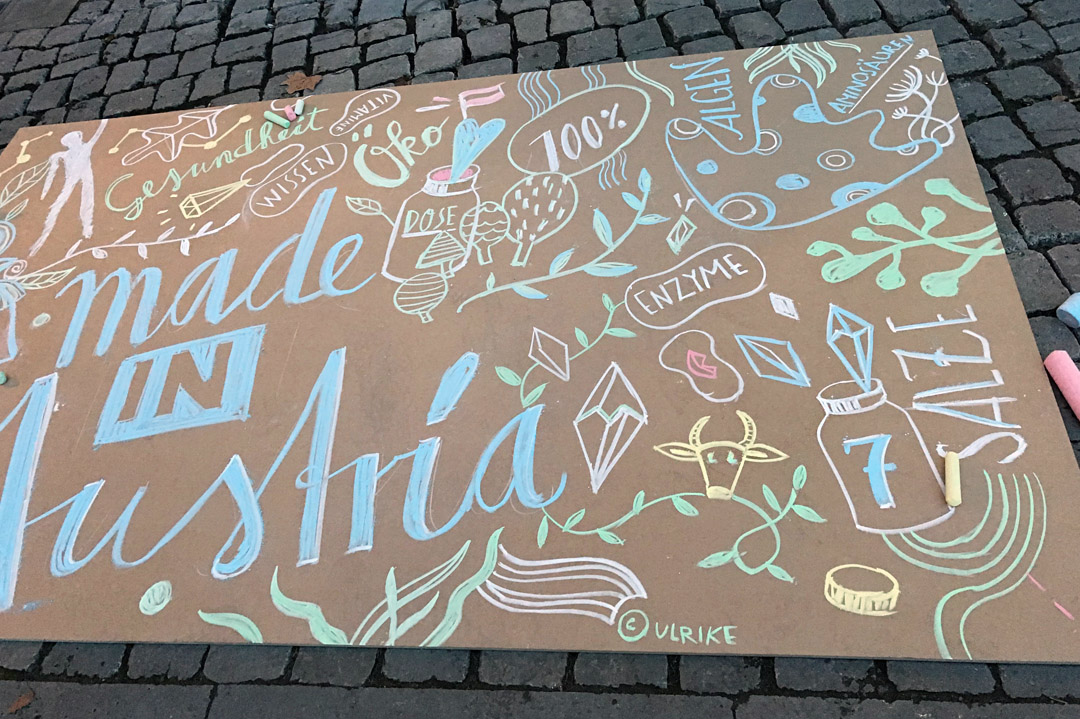 Gesundheit
VITAMIE
WISSEN
Öko
DOSE
100%
ALGEN
AMINOSÄUREN
made
IN
Austria
ENZYME
SALZE
7
© ULRIKE